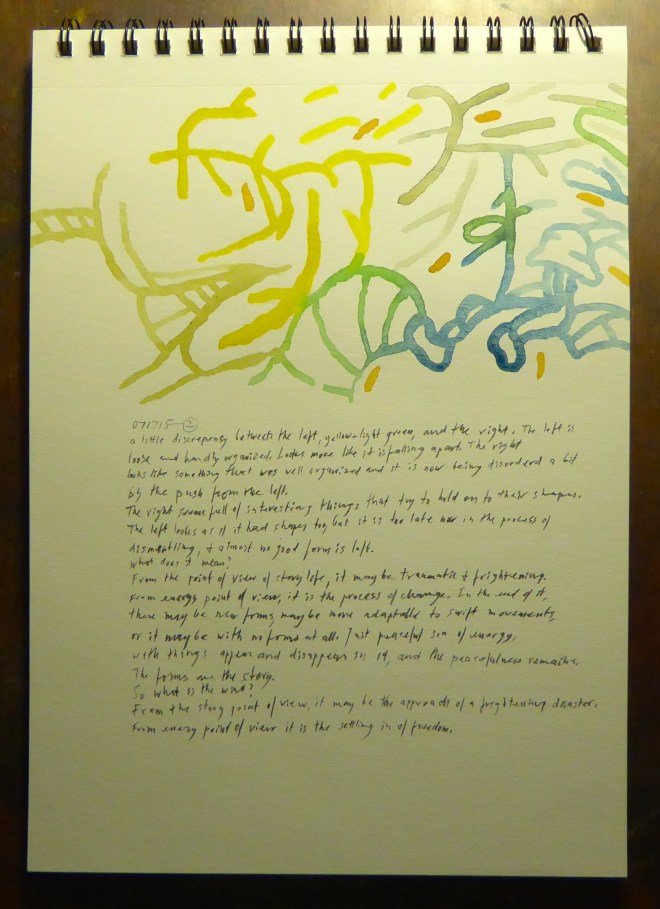 071715 - 2
a little discrepensy between the left, yellow-light green, and the right. The left is
loose and hardly organized. Looks more like it is falling apart. The right
looks like something that was well organized and it is now being disordered a bit
by the push from the left.
The right seems full of interesting things that try to hold on to their shapes.
The left looks as if it had shapes too, but it is too late now in the process of
dismantling, & almost no good form is left.
What does it mean?
From the point of view of story life, it may be traumatic & frightening.
From energy point of view, it is the process of change. In the end of it,
there may be new forms, maybe more adaptable to swift movements,
or it may be with no forms at all. Just peaceful sea of energy,
with things appear and disappear in it, and the peacefulness remains.
The forms are the story.
So what is the
From the story point of view, it may be the approach of a frightening disaster.
From energy point of view it is the settling in of freedom.